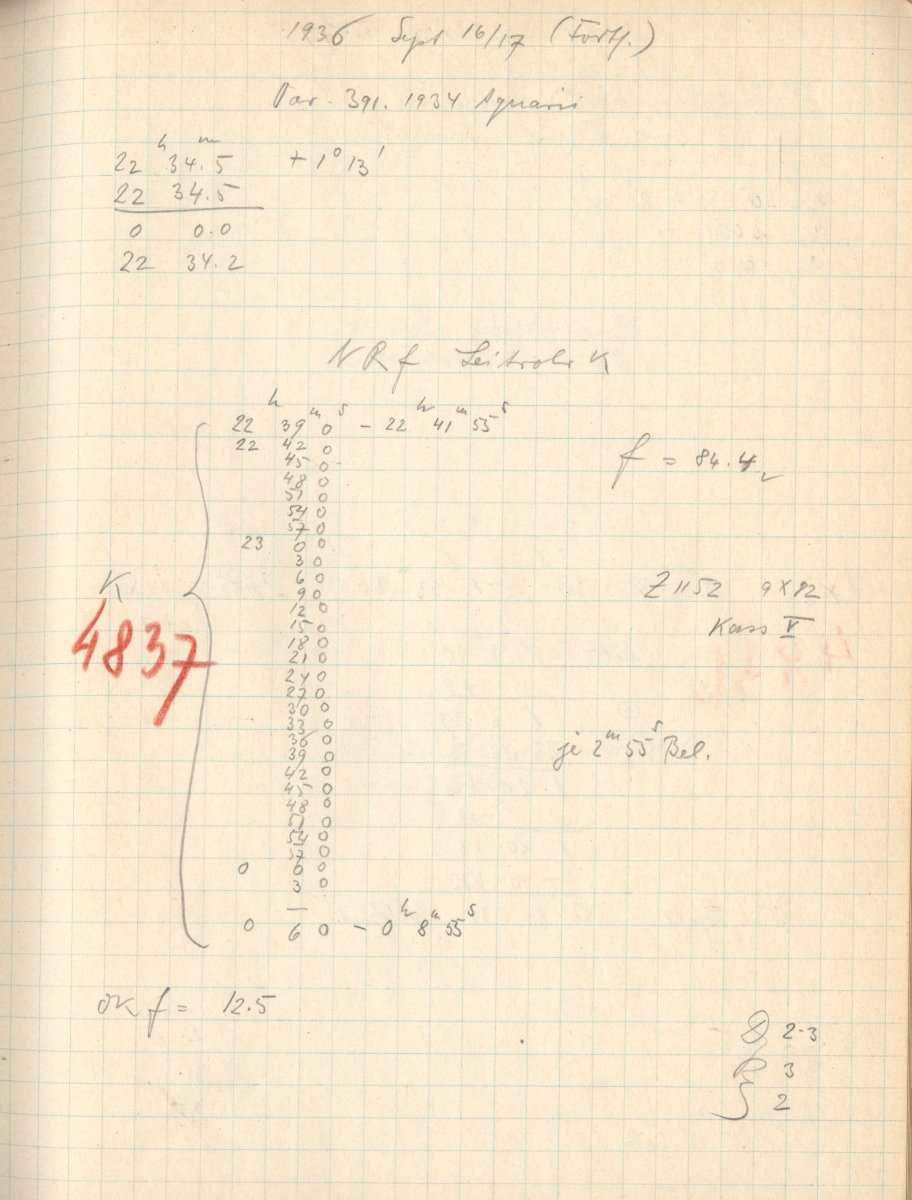 1936 Sept 16/17 (Forts.)
Var. 391. 1934 Aquarii
22ʰ 34.5ᵐ + 1° 13'
22 34.5
0 0.0
22 34.2
NRf Leitrohr K
22ʰ 39ᵐ 0ˢ - 22ʰ 41ᵐ 55ˢ
22 42 0
45 0
f = 84.4
48 0
51 0
54 0
57 0
23 0 0
3 0
6 0
K
Z 1152 9x82
9 0
12 0
Kass V
15 0
4837
18 0
21 0
24 0
27 0
30 0
33 0
36 0
je 2ᵐ 55ˢ Bel.
39 0
42 0
45 0
48 0
51 0
54 0
57 0
0 0 0
3 0
0 6 0 - 0ʰ 8ᵐ 55ˢ
OK f = 12.5
2-3
3
2